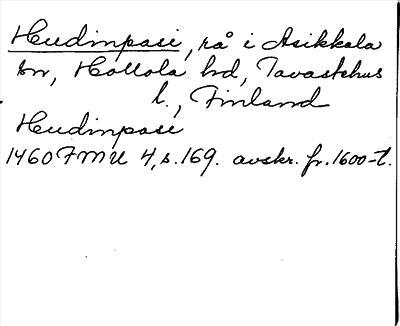 Hudinpasi, rå i Asikkala
sn, Hollola hd, Tavastehus
l., Finland
Hudinpasi
1460 FMU 4, s. 169. avskr. fr. 1600-t.